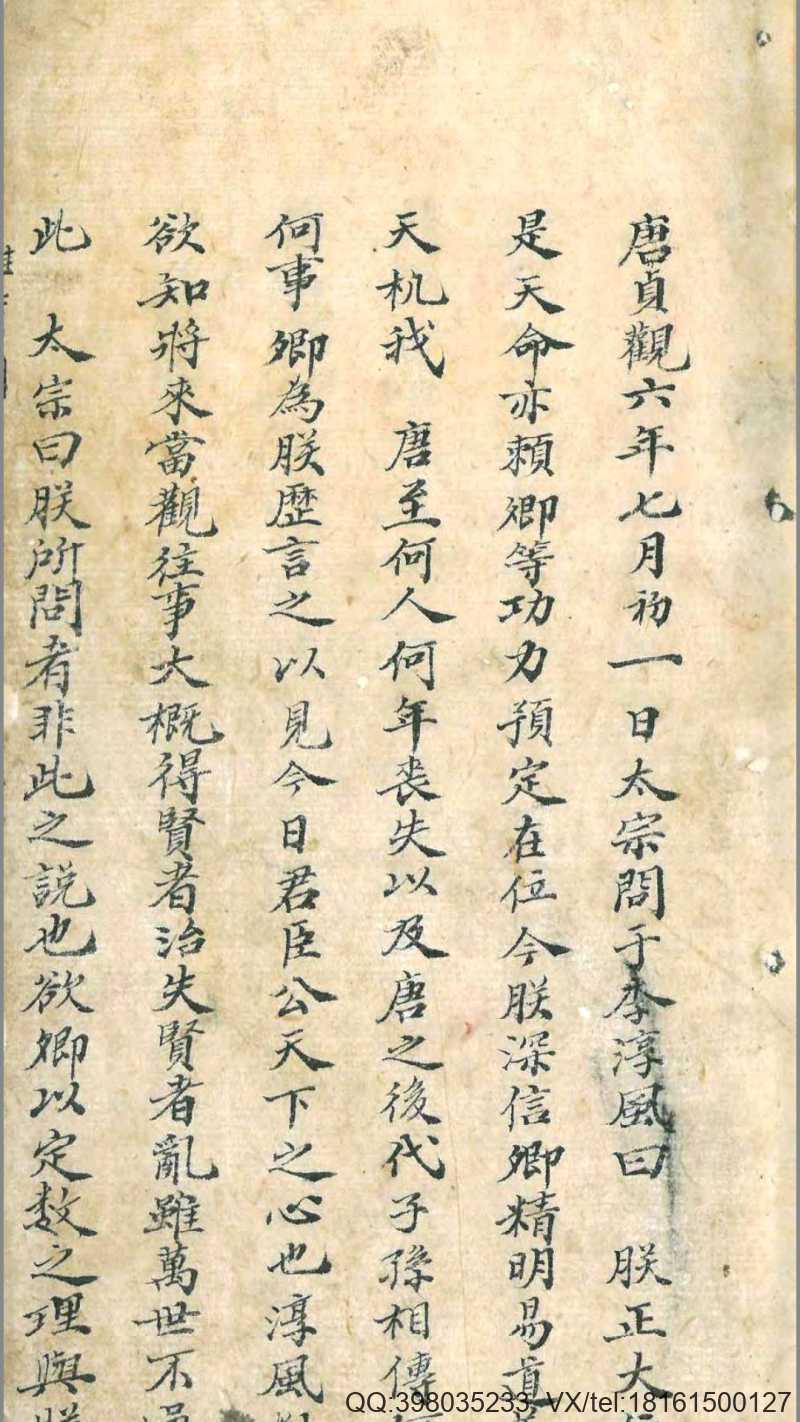 唐貞觀六年七月初一日太宗問于李淳風曰　朕正大
是天命亦賴卿等功力預定在位今朕深信卿精明易道
天机我　唐至何人何年喪失以及唐之後代子孫相傳
何事卿為朕歷言之以見今日君臣公天下之心也淳風
欲知將來當觀往事大概得賢者治失賢者亂雖萬世不
此　太宗曰朕所問者非此之説也欲卿以定数之理與
QQ:398035233, VX/tel:18161500127